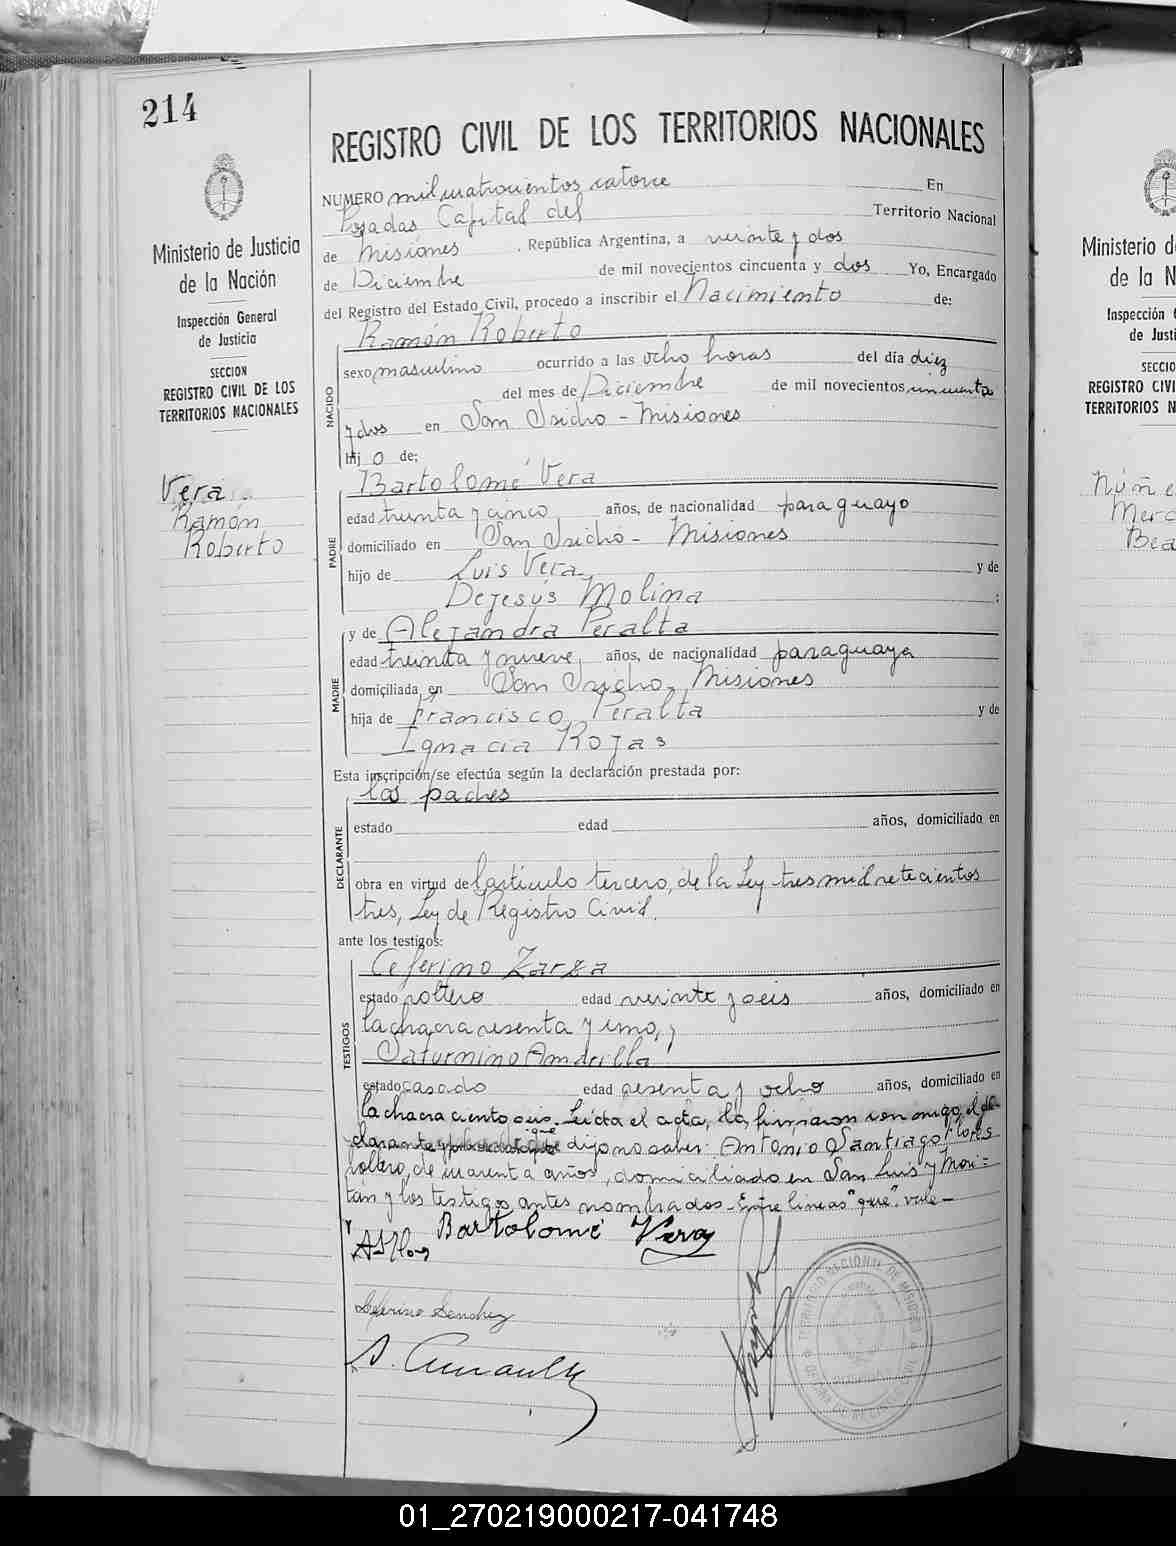 214
REGISTRO CIVIL DE LOS TERRITORIOS NACIONALES
Ministerio de Justicia
de la Nación
Inspección General
de Justicia
SECCION
REGISTRO CIVIL DE LOS
TERRITORIOS NACIONALES
Vera
Ramón
Roberto
NUMERO mil cuatrocientos catorce En
Posadas Capital del Territorio Nacional
de Misiones . República Argentina, a veinte y dos
de Diciembre de mil novecientos cincuenta y dos Yo, Encargado
del Registro del Estado Civil, procedo a inscribir el Nacimiento de:
Ramón Roberto
NACIDO
sexo masculino ocurrido a las ocho horas del día diez
del mes de Diciembre de mil novecientos cincuenta
y dos en San Isidro - Misiones
hij o de:
Bartolomé Vera
PADRE
edad treinta y cinco años, de nacionalidad paraguayo
domiciliado en San Isidro - Misiones
hijo de Luis Vera y de
Dejesús Molina ;
y de Alejandra Peralta
MADRE
edad treinta y nueve años, de nacionalidad paraguaya
domiciliada en San Isidro, Misiones
hija de Francisco Peralta y de
Ignacia Rojas
Esta inscripción se efectúa según la declaración prestada por:
los padres
DECLARANTE
estado edad años, domiciliado en
obra en virtud del artículo tercero, de la Ley tres mil setecientos
tres, Ley de Registro Civil.
ante los testigos:
Ceferino Zarza
TESTIGOS
estado soltero edad veinte y seis años, domiciliado en
la chacra sesenta y uno, y
Saturnino Amarilla
estado casado edad sesenta y ocho años, domiciliado en
la chacra ciento seis. Leída el acta, la firmaron conmigo, el de-
que
clarante dijo no saber: Antonio Santiago Flores
soltero, de cuarenta años, domiciliado en San Luis y
y los testigos antes nombrados - Entre líneas "que". vale -
Bartolomé Vera
TERRITORIO NACIONAL DE MISIONES
Ministerio d
de la N
Inspección
de Justi
SECCIO
REGISTRO CIVI
TERRITORIOS N
Núñe
Merc
Bea
01_270219000217-041748